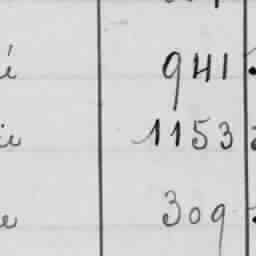 941
1153
309